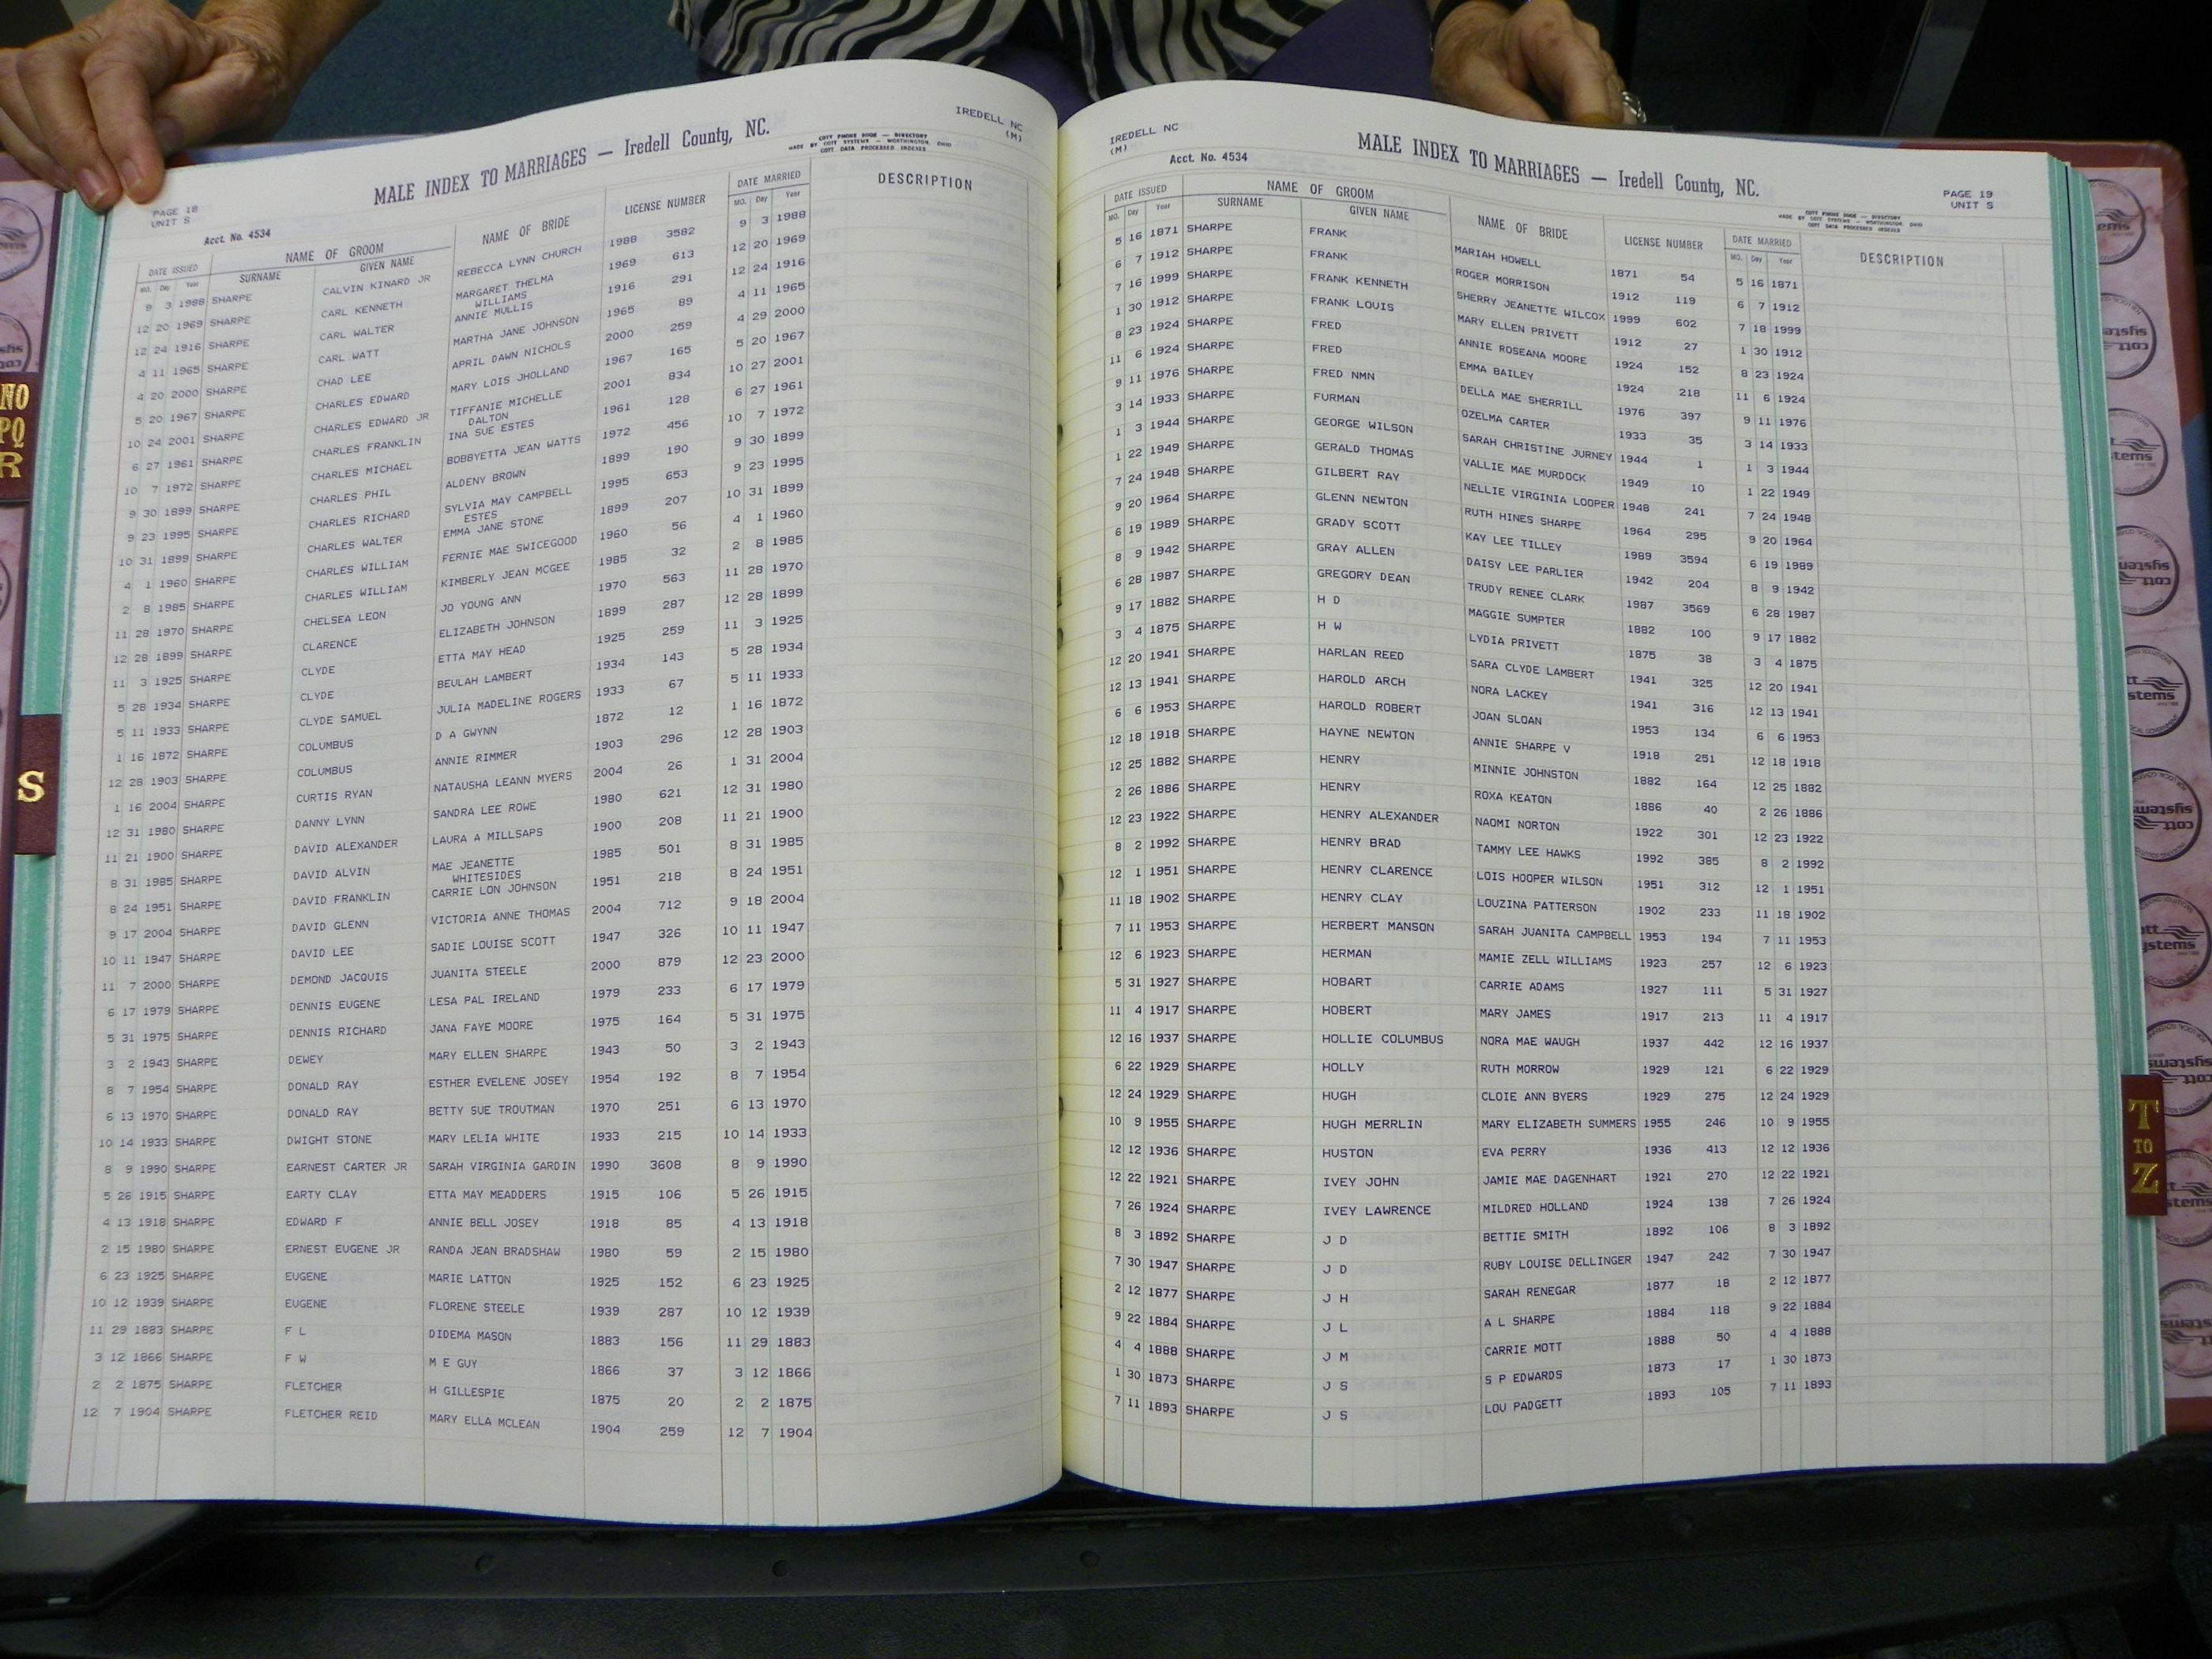 IREDELL NC
(M)
MALE INDEX TO MARRIAGES — Iredell County, NC.
COTT PHONE BOOK — DIRECTORY
MADE BY COTT SYSTEMS — WORTHINGTON, OHIO
COTT DATA PROCESSED INDEXES
PAGE 18
UNIT S
Acct. No. 4534
DATE ISSUED NAME OF GROOM NAME OF BRIDE LICENSE NUMBER DATE MARRIED DESCRIPTION
MO. Day Year SURNAME GIVEN NAME MO. Day Year
9 3 1988 SHARPE CALVIN KINARD JR REBECCA LYNN CHURCH 1988 3582 9 3 1988
12 20 1969 SHARPE CARL KENNETH MARGARET THELMA 1969 613 12 20 1969
WILLIAMS
12 24 1916 SHARPE CARL WALTER ANNIE MULLIS 1916 291 12 24 1916
4 11 1965 SHARPE CARL WATT MARTHA JANE JOHNSON 1965 89 4 11 1965
4 20 2000 SHARPE CHAD LEE APRIL DAWN NICHOLS 2000 259 4 29 2000
5 20 1967 SHARPE CHARLES EDWARD MARY LOIS JHOLLAND 1967 165 5 20 1967
10 24 2001 SHARPE CHARLES EDWARD JR TIFFANIE MICHELLE 2001 834 10 27 2001
DALTON
6 27 1961 SHARPE CHARLES FRANKLIN INA SUE ESTES 1961 128 6 27 1961
10 7 1972 SHARPE CHARLES MICHAEL BOBBYETTA JEAN WATTS 1972 456 10 7 1972
9 30 1899 SHARPE CHARLES PHIL ALDENY BROWN 1899 190 9 30 1899
9 23 1995 SHARPE CHARLES RICHARD SYLVIA MAY CAMPBELL 1995 653 9 23 1995
ESTES
10 31 1899 SHARPE CHARLES WALTER EMMA JANE STONE 1899 207 10 31 1899
4 1 1960 SHARPE CHARLES WILLIAM FERNIE MAE SWICEGOOD 1960 56 4 1 1960
2 8 1985 SHARPE CHARLES WILLIAM KIMBERLY JEAN MCGEE 1985 32 2 8 1985
11 28 1970 SHARPE CHELSEA LEON JO YOUNG ANN 1970 563 11 28 1970
12 28 1899 SHARPE CLARENCE ELIZABETH JOHNSON 1899 287 12 28 1899
11 3 1925 SHARPE CLYDE ETTA MAY HEAD 1925 259 11 3 1925
5 28 1934 SHARPE CLYDE BEULAH LAMBERT 1934 143 5 28 1934
5 11 1933 SHARPE CLYDE SAMUEL JULIA MADELINE ROGERS 1933 67 5 11 1933
1 16 1872 SHARPE COLUMBUS D A GWYNN 1872 12 1 16 1872
12 28 1903 SHARPE COLUMBUS ANNIE RIMMER 1903 296 12 28 1903
1 16 2004 SHARPE CURTIS RYAN NATAUSHA LEANN MYERS 2004 26 1 31 2004
12 31 1980 SHARPE DANNY LYNN SANDRA LEE ROWE 1980 621 12 31 1980
11 21 1900 SHARPE DAVID ALEXANDER LAURA A MILLSAPS 1900 208 11 21 1900
8 31 1985 SHARPE DAVID ALVIN MAE JEANETTE 1985 501 8 31 1985
WHITESIDES
8 24 1951 SHARPE DAVID FRANKLIN CARRIE LON JOHNSON 1951 218 8 24 1951
9 17 2004 SHARPE DAVID GLENN VICTORIA ANNE THOMAS 2004 712 9 18 2004
10 11 1947 SHARPE DAVID LEE SADIE LOUISE SCOTT 1947 326 10 11 1947
11 7 2000 SHARPE DEMOND JACQUIS JUANITA STEELE 2000 879 12 23 2000
6 17 1979 SHARPE DENNIS EUGENE LESA PAL IRELAND 1979 233 6 17 1979
5 31 1975 SHARPE DENNIS RICHARD JANA FAYE MOORE 1975 164 5 31 1975
3 2 1943 SHARPE DEWEY MARY ELLEN SHARPE 1943 50 3 2 1943
8 7 1954 SHARPE DONALD RAY ESTHER EVELENE JOSEY 1954 192 8 7 1954
6 13 1970 SHARPE DONALD RAY BETTY SUE TROUTMAN 1970 251 6 13 1970
10 14 1933 SHARPE DWIGHT STONE MARY LELIA WHITE 1933 215 10 14 1933
8 9 1990 SHARPE EARNEST CARTER JR SARAH VIRGINIA GARDIN 1990 3608 8 9 1990
5 26 1915 SHARPE EARTY CLAY ETTA MAY MEADDERS 1915 106 5 26 1915
4 13 1918 SHARPE EDWARD F ANNIE BELL JOSEY 1918 85 4 13 1918
2 15 1980 SHARPE ERNEST EUGENE JR RANDA JEAN BRADSHAW 1980 59 2 15 1980
6 23 1925 SHARPE EUGENE MARIE LATTON 1925 152 6 23 1925
10 12 1939 SHARPE EUGENE FLORENE STEELE 1939 287 10 12 1939
11 29 1883 SHARPE F L DIDEMA MASON 1883 156 11 29 1883
3 12 1866 SHARPE F W M E GUY 1866 37 3 12 1866
2 2 1875 SHARPE FLETCHER H GILLESPIE 1875 20 2 2 1875
12 7 1904 SHARPE FLETCHER REID MARY ELLA MCLEAN 1904 259 12 7 1904
IREDELL NC
(M)
MALE INDEX TO MARRIAGES — Iredell County, NC.
Acct. No. 4534
PAGE 19
UNIT S
COTT PHONE BOOK — DIRECTORY
MADE BY COTT SYSTEMS — WORTHINGTON, OHIO
COTT DATA PROCESSED INDEXES
DATE ISSUED NAME OF GROOM NAME OF BRIDE LICENSE NUMBER DATE MARRIED DESCRIPTION
MO. Day Year SURNAME GIVEN NAME MO. Day Year
5 16 1871 SHARPE FRANK MARIAH HOWELL 1871 54 5 16 1871
6 7 1912 SHARPE FRANK ROGER MORRISON 1912 119 6 7 1912
7 16 1999 SHARPE FRANK KENNETH SHERRY JEANETTE WILCOX 1999 602 7 18 1999
1 30 1912 SHARPE FRANK LOUIS MARY ELLEN PRIVETT 1912 27 1 30 1912
8 23 1924 SHARPE FRED ANNIE ROSEANA MOORE 1924 152 8 23 1924
11 6 1924 SHARPE FRED EMMA BAILEY 1924 218 11 6 1924
9 11 1976 SHARPE FRED NMN DELLA MAE SHERRILL 1976 397 9 11 1976
3 14 1933 SHARPE FURMAN OZELMA CARTER 1933 35 3 14 1933
1 3 1944 SHARPE GEORGE WILSON SARAH CHRISTINE JURNEY 1944 1 1 3 1944
1 22 1949 SHARPE GERALD THOMAS VALLIE MAE MURDOCK 1949 10 1 22 1949
7 24 1948 SHARPE GILBERT RAY NELLIE VIRGINIA LOOPER 1948 241 7 24 1948
9 20 1964 SHARPE GLENN NEWTON RUTH HINES SHARPE 1964 295 9 20 1964
6 19 1989 SHARPE GRADY SCOTT KAY LEE TILLEY 1989 3594 6 19 1989
8 9 1942 SHARPE GRAY ALLEN DAISY LEE PARLIER 1942 204 8 9 1942
6 28 1987 SHARPE GREGORY DEAN TRUDY RENEE CLARK 1987 3569 6 28 1987
9 17 1882 SHARPE H D MAGGIE SUMPTER 1882 100 9 17 1882
3 4 1875 SHARPE H W LYDIA PRIVETT 1875 38 3 4 1875
12 20 1941 SHARPE HARLAN REED SARA CLYDE LAMBERT 1941 325 12 20 1941
12 13 1941 SHARPE HAROLD ARCH NORA LACKEY 1941 316 12 13 1941
6 6 1953 SHARPE HAROLD ROBERT JOAN SLOAN 1953 134 6 6 1953
12 18 1918 SHARPE HAYNE NEWTON ANNIE SHARPE V 1918 251 12 18 1918
12 25 1882 SHARPE HENRY MINNIE JOHNSTON 1882 164 12 25 1882
2 26 1886 SHARPE HENRY ROXA KEATON 1886 40 2 26 1886
12 23 1922 SHARPE HENRY ALEXANDER NAOMI NORTON 1922 301 12 23 1922
8 2 1992 SHARPE HENRY BRAD TAMMY LEE HAWKS 1992 385 8 2 1992
12 1 1951 SHARPE HENRY CLARENCE LOIS HOOPER WILSON 1951 312 12 1 1951
11 18 1902 SHARPE HENRY CLAY LOUZINA PATTERSON 1902 233 11 18 1902
7 11 1953 SHARPE HERBERT MANSON SARAH JUANITA CAMPBELL 1953 194 7 11 1953
12 6 1923 SHARPE HERMAN MAMIE ZELL WILLIAMS 1923 257 12 6 1923
5 31 1927 SHARPE HOBART CARRIE ADAMS 1927 111 5 31 1927
11 4 1917 SHARPE HOBERT MARY JAMES 1917 213 11 4 1917
12 16 1937 SHARPE HOLLIE COLUMBUS NORA MAE WAUGH 1937 442 12 16 1937
6 22 1929 SHARPE HOLLY RUTH MORROW 1929 121 6 22 1929
12 24 1929 SHARPE HUGH CLOIE ANN BYERS 1929 275 12 24 1929
10 9 1955 SHARPE HUGH MERRLIN MARY ELIZABETH SUMMERS 1955 246 10 9 1955
12 12 1936 SHARPE HUSTON EVA PERRY 1936 413 12 12 1936
12 22 1921 SHARPE IVEY JOHN JAMIE MAE DAGENHART 1921 270 12 22 1921
7 26 1924 SHARPE IVEY LAWRENCE MILDRED HOLLAND 1924 138 7 26 1924
8 3 1892 SHARPE J D BETTIE SMITH 1892 106 8 3 1892
7 30 1947 SHARPE J D RUBY LOUISE DELLINGER 1947 242 7 30 1947
2 12 1877 SHARPE J H SARAH RENEGAR 1877 18 2 12 1877
9 22 1884 SHARPE J L A L SHARPE 1884 118 9 22 1884
4 4 1888 SHARPE J M CARRIE MOTT 1888 50 4 4 1888
1 30 1873 SHARPE J S S P EDWARDS 1873 17 1 30 1873
7 11 1893 SHARPE J S LOU PADGETT 1893 105 7 11 1893
NO
PQ
R
S
T
TO
Z
cott
systems